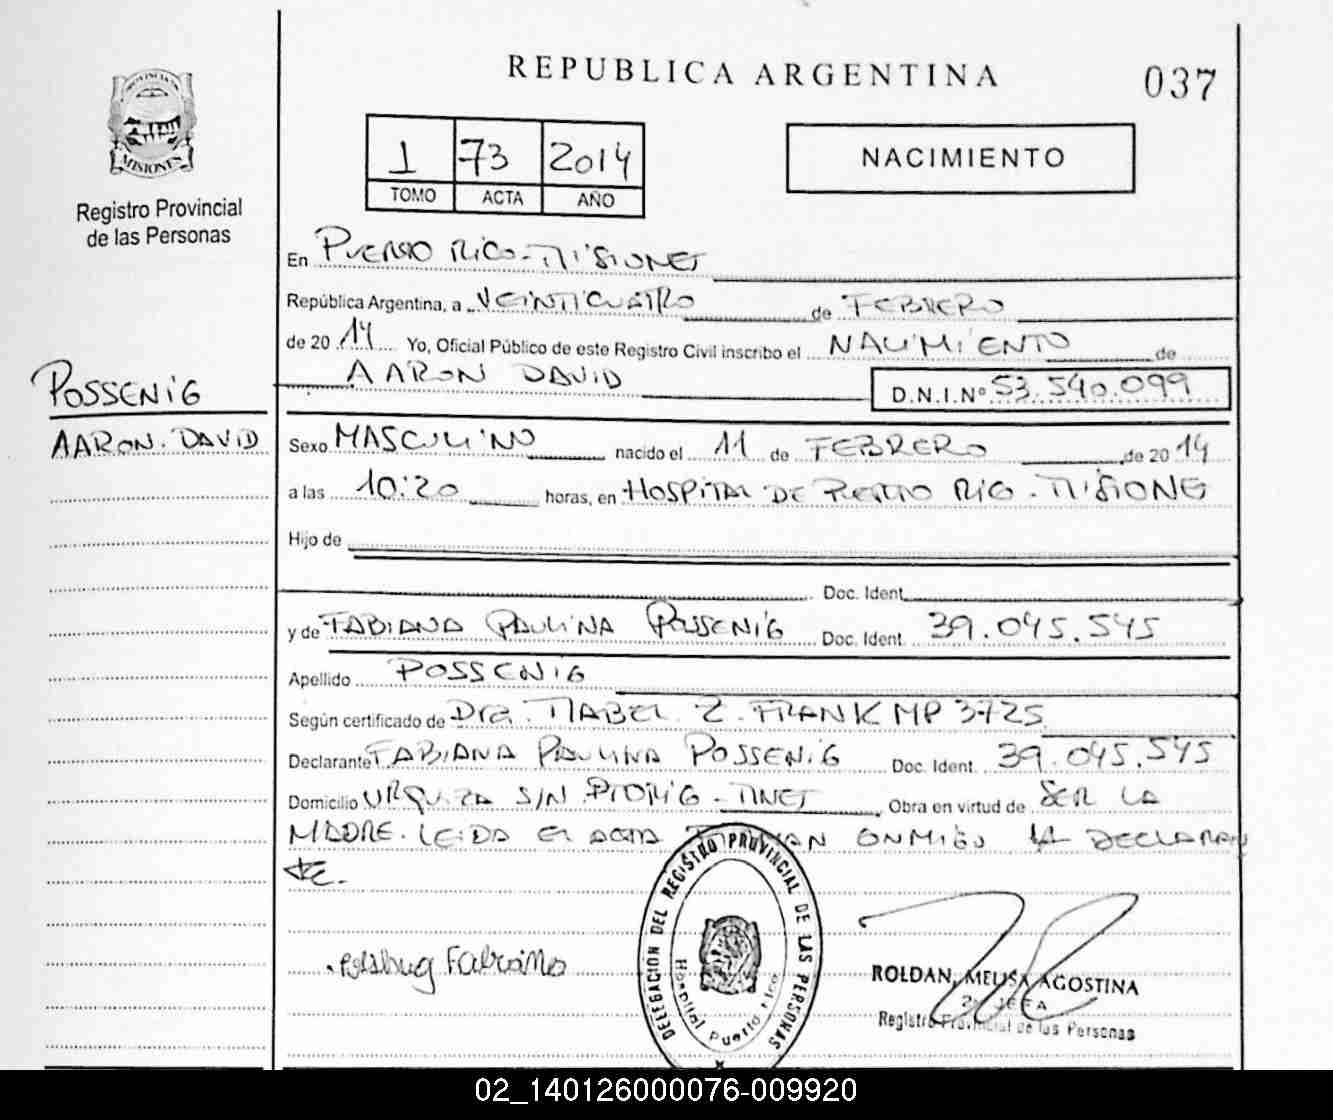 REPUBLICA ARGENTINA
037
PROVINCIA DE
MISIONES
Registro Provincial
de las Personas
1 73 2014
TOMO ACTA AÑO
NACIMIENTO
En PUERTO RICO - MISIONES
República Argentina, a VEINTICUATRO de FEBRERO
de 20 14 Yo, Oficial Público de este Registro Civil inscribo el NACIMIENTO de
AARON DAVID D.N.I.Nº 53.540.099
POSSENIG
AARON DAVID
Sexo MASCULINO nacido el 11 de FEBRERO de 20 14
a las 10:20 horas, en HOSPITAL DE PUERTO RICO - MISIONE
Hijo de
Doc. Ident.
y de FABIANA PAULINA POSSENIG Doc. Ident. 39.045.545
Apellido POSSENIG
Según certificado de Dra. MABEL Z. FRANK MP 3725
Declarante FABIANA PAULINA POSSENIG Doc. Ident. 39.045.545
Domicilio URQUIZA S/N Obra en virtud de SER LA
MADRE. LEIDA EL ACTA LA DECLARAN
TE.
DELEGACION DEL REGISTRO PROVINCIAL DE LAS PERSONAS
Hospital Puerto Rico
ROLDAN, MELISA AGOSTINA
2º JEFA
Registro Provincial de las Personas
02_140126000076-009920